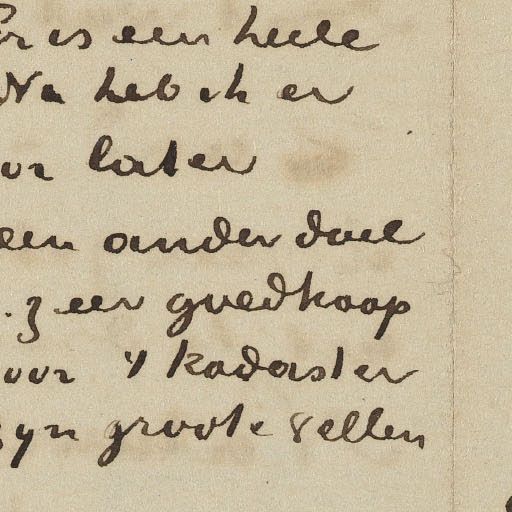 Er is een heele
Nu heb ik er
oor later
een ander doel
. zeer goedkoop
voor 't kadaster
zyn groote vellen